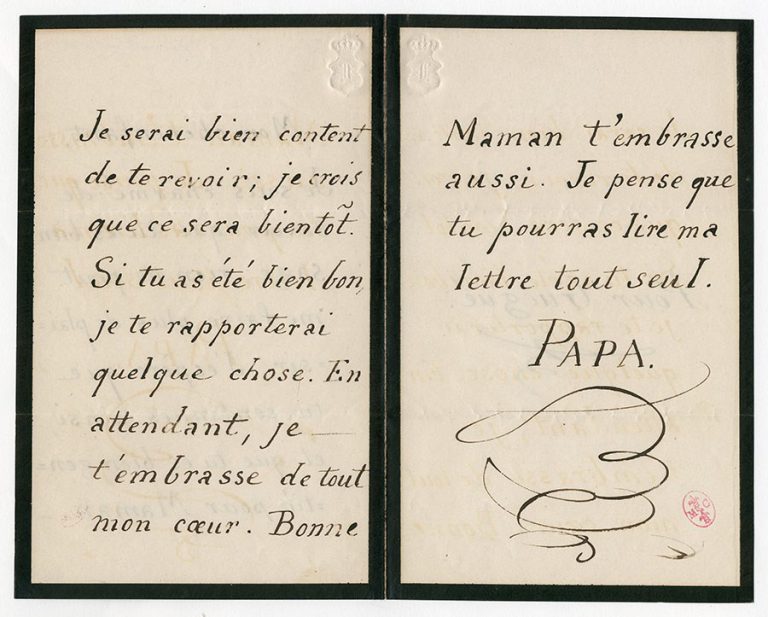 Je serai bien content
de te revoir; je crois
que ce sera bientôt.
Si tu as été bien bon,
je te rapporterai
quelque chose. En
attendant, je
t'embrasse de tout
mon cœur. Bonne
Maman t'embrasse
aussi. Je pense que
tu pourras lire ma
lettre tout seul.
PAPA.